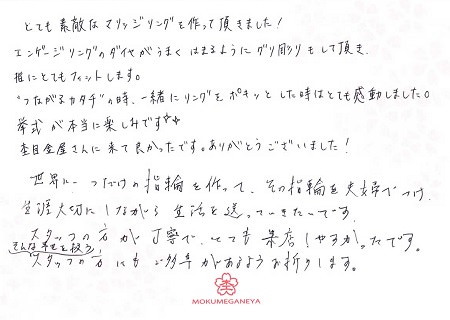 とても素敵なマリッジリングを作って頂きました！
エンゲージリングのダイヤがうまくはまるようにグリ彫りもして頂き、
指にとてもフィットします。
"つながるカタチ"の時、一緒にリングをポキッとした時はとても感動しました。
挙式が本当に楽しみです☆☆
杢目金屋さんに来て良かったです。ありがとうございました！
世界に一つだけの指輪を作って、その指輪を夫婦でつけ、
生涯大切にしながら生活を送っていきたいです。
スタッフの方が丁寧で、とても来店しやすかったです。
そんな幸せを扱う
スタッフの方にもご多幸があるよう お祈りします。
MOKUMEGANEYA